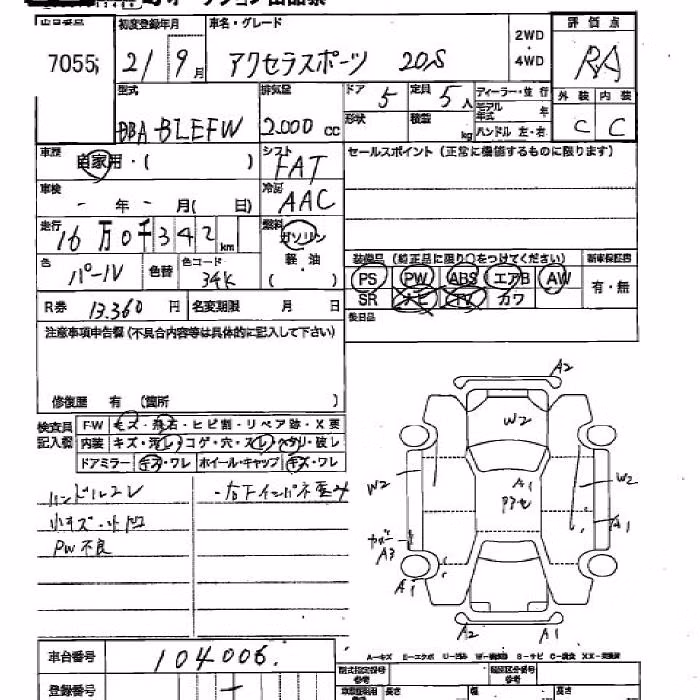 7055
初度登録年月
21年9月
車名・グレード
アクセラスポーツ 20S
2WD
・
4WD
評価点
RA
外装 内装
C C
型式
DBA-BLEFW
排気量
2.000 cc
ドア 5
定員 5人
形状
積載 kg
ディーラー・並行
モデル年式 年
ハンドル 左・右
車歴
自家用・( )
シフト
FAT
セールスポイント (正常に機能するものに限ります)
車検
- 年 - 月( 日)
冷房
AAC
走行
16万0千342km
燃料
ガソリン
軽・油
( )
色
パール
色替
色コード
34K
装備品 (純正品に限り○をつけてください)
新車保証書
PS PW ABS エアB AW
有・無
SR ナビ TV カワ
R券 13.360円
名変期限 月 日
後日品
注意事項申告書 (不具合内容等は具体的に記入して下さい)
修復歴 有 (箇所 )
検査員
記入欄
F・W キズ・飛石・ヒビ割・リペア跡・X要
内装 キズ・汚レ・コゲ・穴・スレ・ヘタリ・破レ
ドアミラー キズ・ワレ ホイール・キャップ キズ・ワレ
ハンドルスレ
小キズ・小凹
PW不良
A2
W2
A1
W2
W2
A1
A3
A1
A2
A1
車台番号
104006.
登録番号
-
型式指定番号
参考
類別区分番号
参考
長さ
幅
高さ